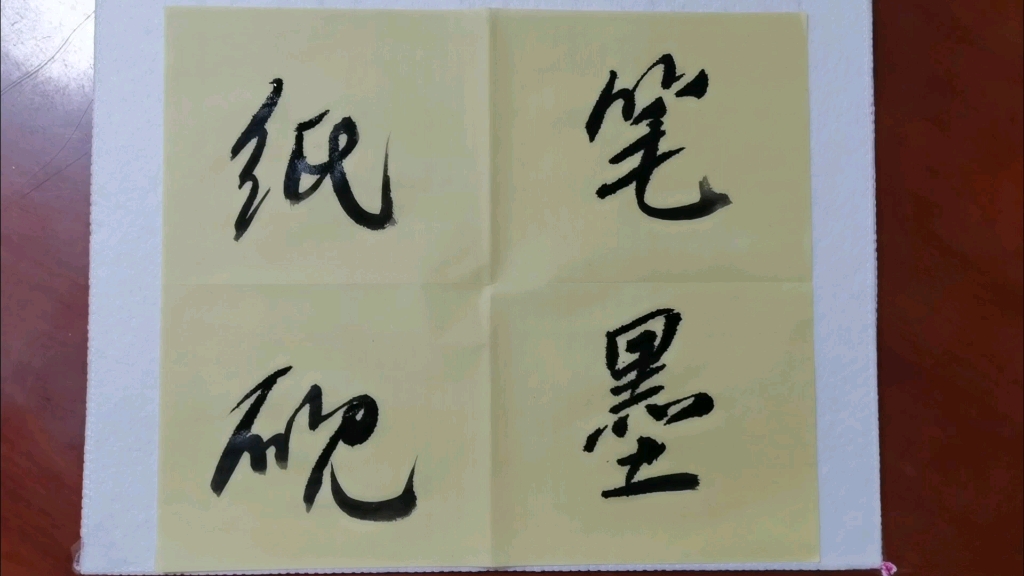 笔墨
纸砚